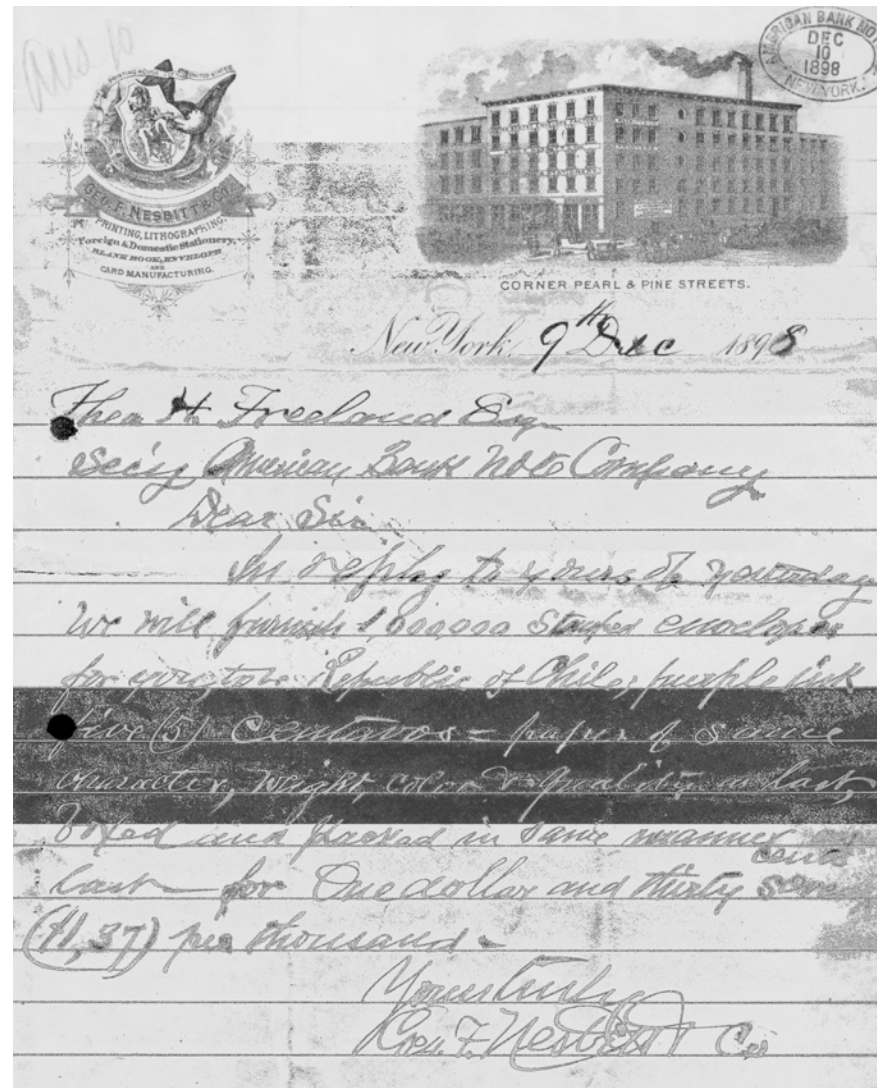 Ans 10
AMERICAN BANK NOTE
DEC
10
1898
NEW YORK.
PRINTING HOUSE UNITED STATES
GEO. F. NESBITT & CO.
PRINTING, LITHOGRAPHING,
Foreign & Domestic Stationery,
BLANK BOOK, ENVELOPE
AND
CARD MANUFACTURING.
CORNER PEARL & PINE STREETS.
New York, 9th Dec 1898
Theo H. Freeland Esq
Sec'y American Bank Note Company
Dear Sir
In reply to yours of yesterday
We will furnish 1,000,000 Stamped envelopes
for you, to Republic of Chile, purple ink
five (5) Centavos - paper of same
character, weight, color & quality as last,
boxed and packed in same manner as
last - for One dollar and thirty seven cents
($1,37) per thousand -
Yours truly
Geo. F. Nesbitt & Co